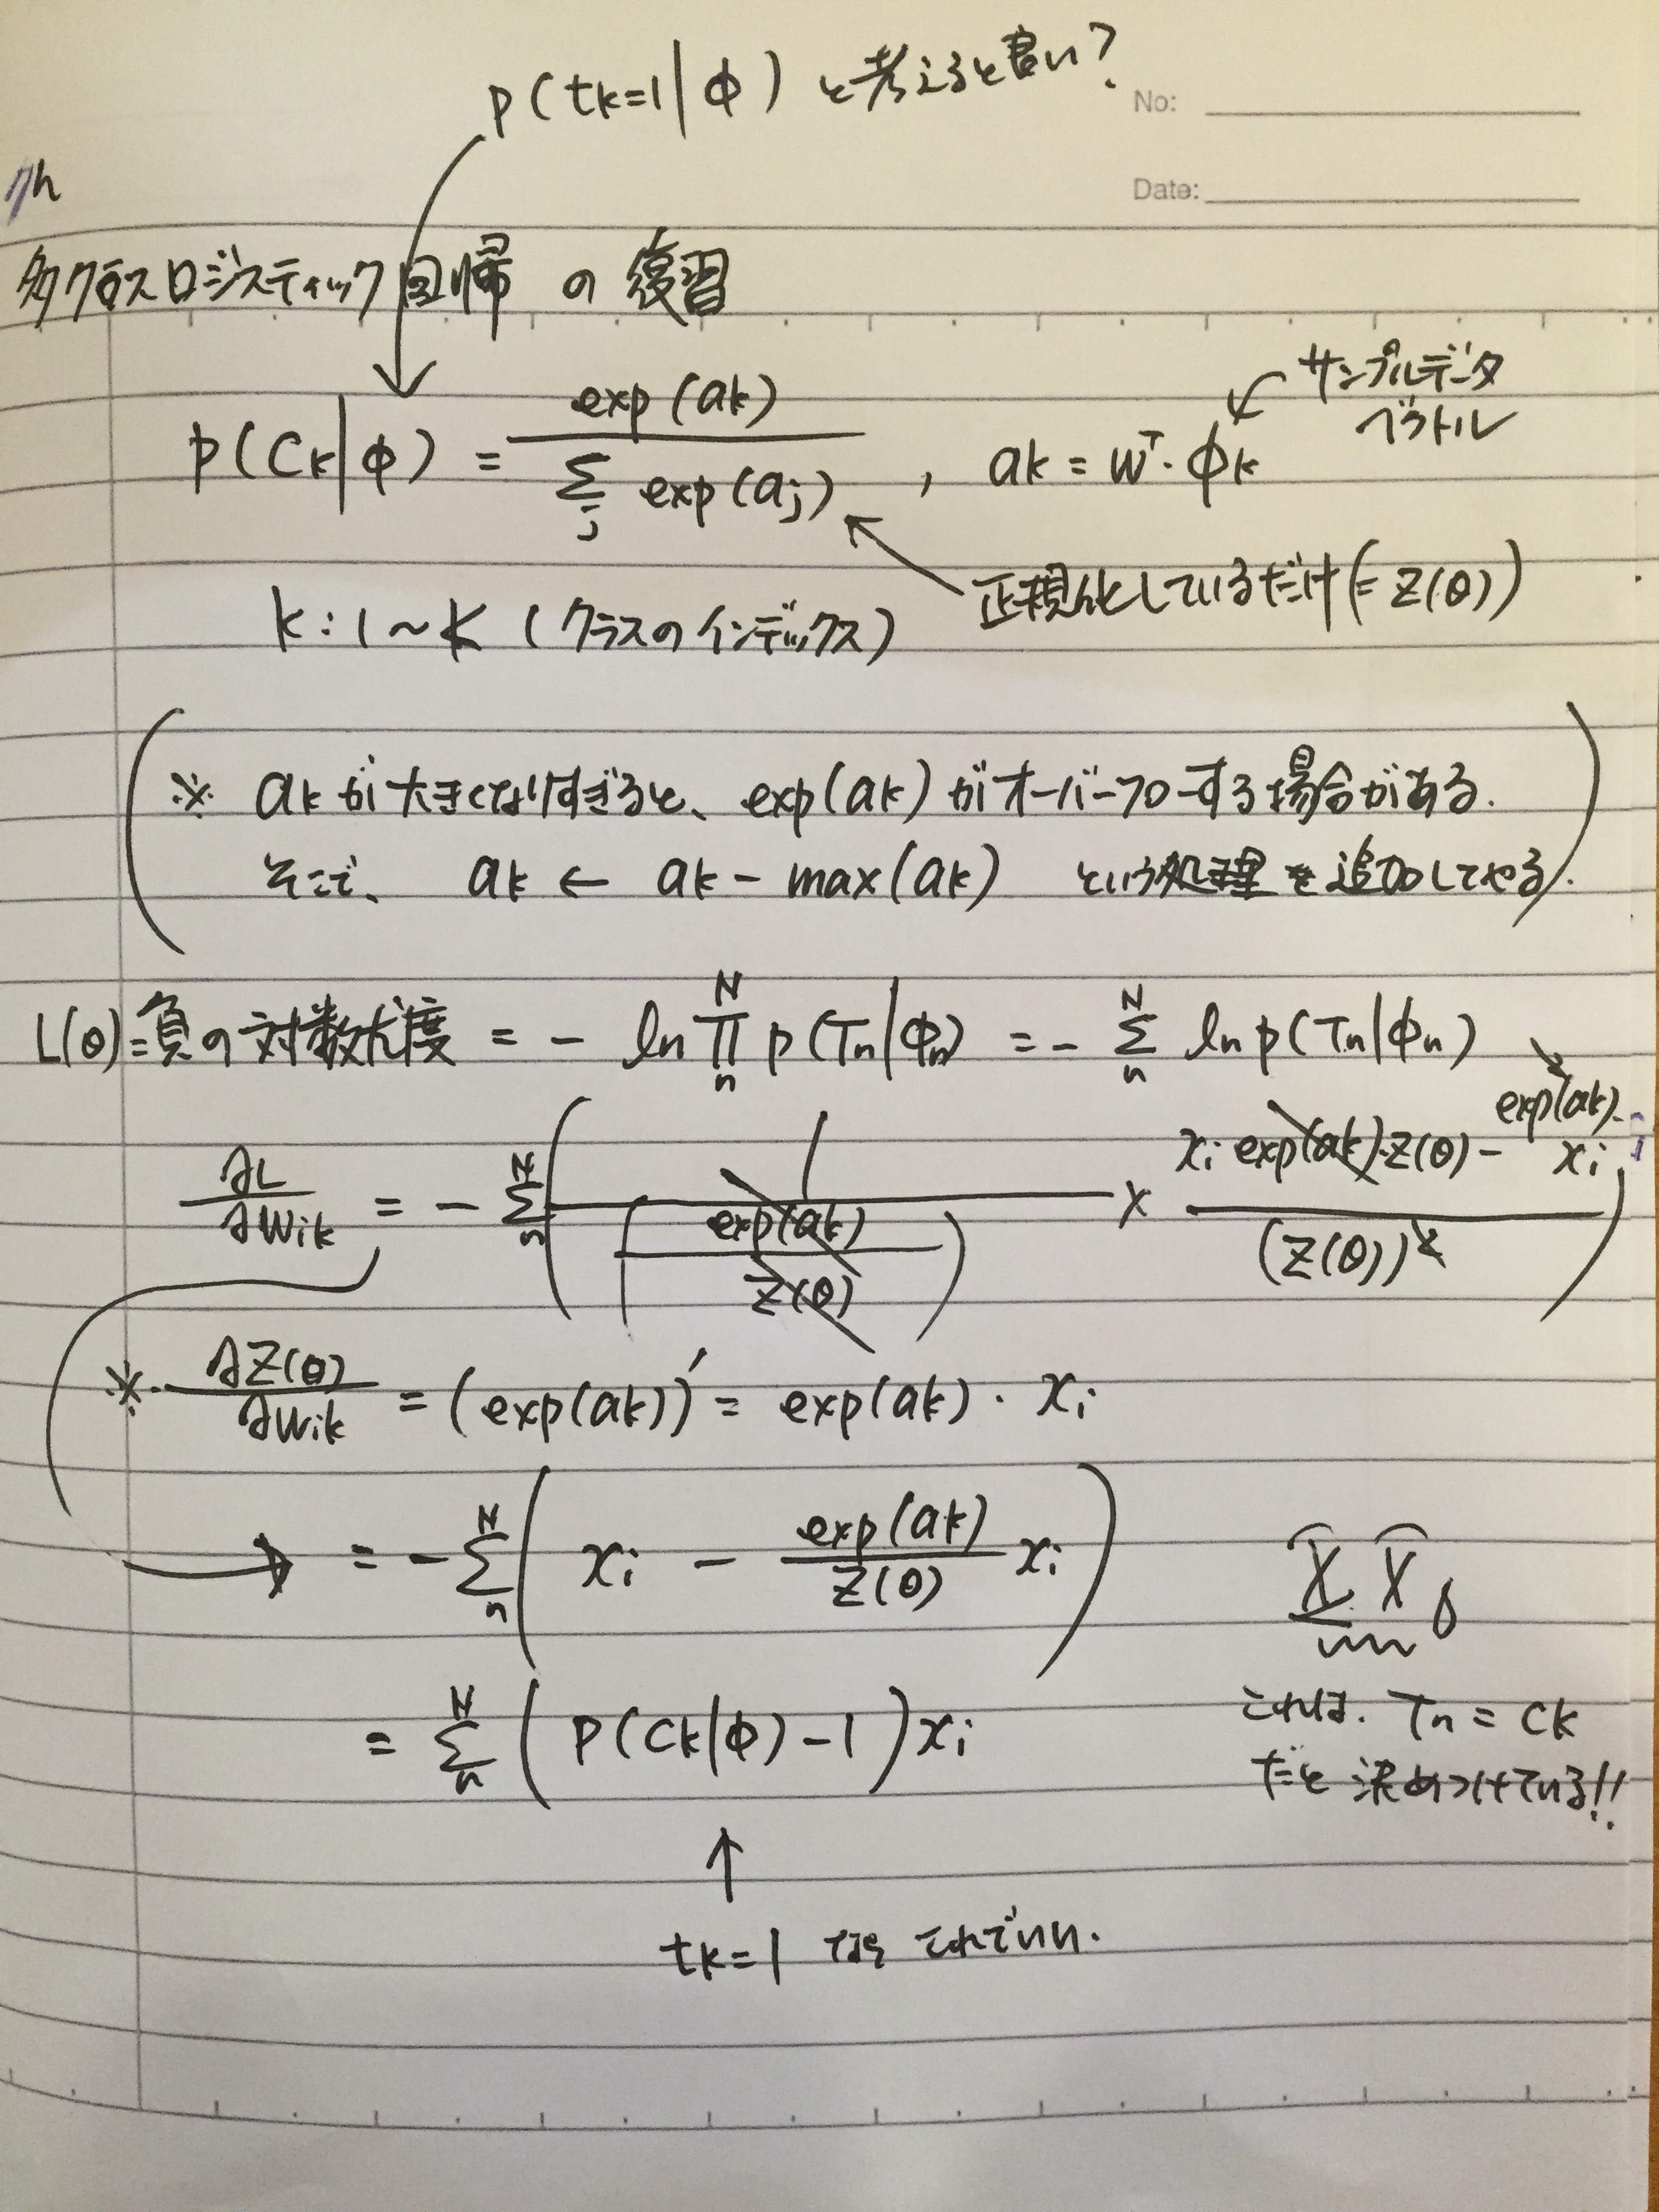 p(tk=1|φ) と考えると良い?
No:
Date:
多クラスロジスティック回帰 の 復習
p(Ck|φ) = exp(ak) / Σj exp(aj) , ak = wᵀ·φk
サンプルデータ
ベクトル
正規化しているだけ(= Z(θ))
k : 1 ~ K (クラスのインデックス)
※ akが大きくなりすぎると、exp(ak)がオーバーフローする場合がある.
そこで、 ak ← ak - max(ak) という処理を追加してやる.
L(θ)=負の対数尤度 = - ln Π_n^N p(Tn|φn) = - Σ_n^N ln p(Tn|φn)
∂L/∂wik = - Σ_n^N ( 1 / (exp(ak)/Z(θ)) × (xi exp(ak)·Z(θ) - exp(ak)·xi) / (Z(θ))² )
※ ∂Z(θ)/∂wik = (exp(ak))′ = exp(ak) · xi
= - Σ_n^N ( xi - exp(ak)/Z(θ) xi )
= Σ_n^N ( P(Ck|φ) - 1 ) xi
これは. Tn = Ck
だと決めつけている!!
tk=1 なら これでいい.